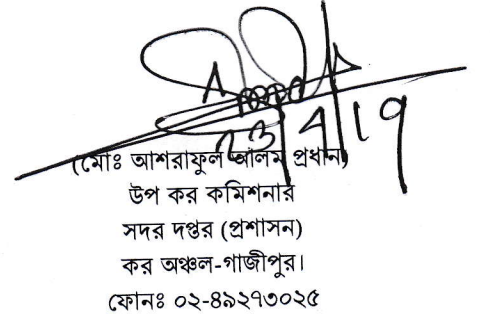 (মোঃ আশরাফুল আলম প্রধান)
উপ কর কমিশনার
সদর দপ্তর (প্রশাসন)
কর অঞ্চল-গাজীপুর।
ফোনঃ ০২-৪৯২৭৩০২৫